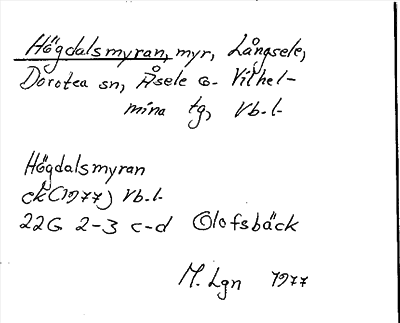 Högdalsmyran, myr, Långsele,
Dorotea sn, Åsele o. Vilhel-
mina tg, Vb.l.
Högdalsmyran
ek(1977) Vb.l.
22G 2-3 c-d Olofsbäck
M. Lgn 1977